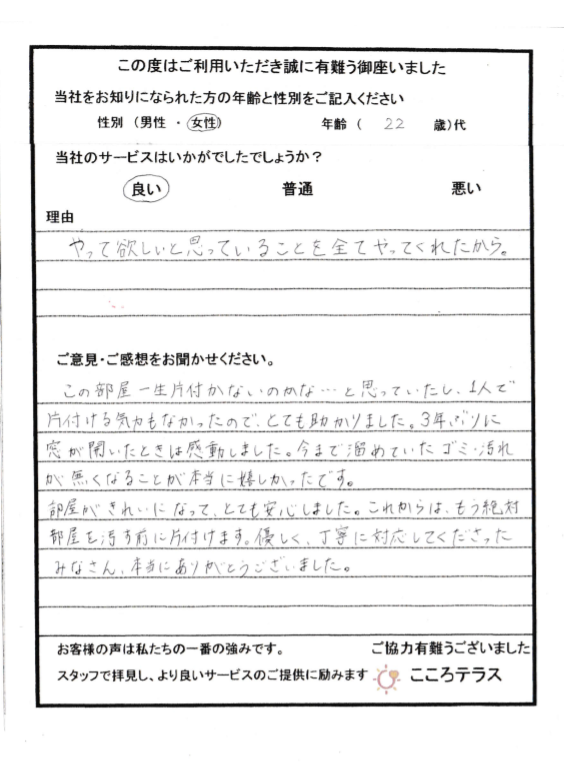 この度はご利用いただき誠に有難う御座いました
当社をお知りになられた方の年齢と性別をご記入ください
性別 (男性 ・ 女性) 年齢 ( 22 歳)代
当社のサービスはいかがでしたでしょうか？
良い 普通 悪い
理由
やって欲しいと思っていることを全てやってくれたから。
ご意見・ご感想をお聞かせください。
この部屋一生片付かないのかな…と思っていたし、1人で
片付ける気力もなかったので、とても助かりました。3年ぶりに
窓が開いたときは感動しました。今まで溜めていたゴミ・汚れ
が無くなることが本当に嬉しかったです。
部屋がきれいになって、とても安心しました。これからは、もう絶対
部屋を汚す前に片付けます。優しく、丁寧に対応してくださった
みなさん、本当にありがとうございました。
お客様の声は私たちの一番の強みです。 ご協力有難うございました
スタッフで拝見し、より良いサービスのご提供に励みます こころテラス